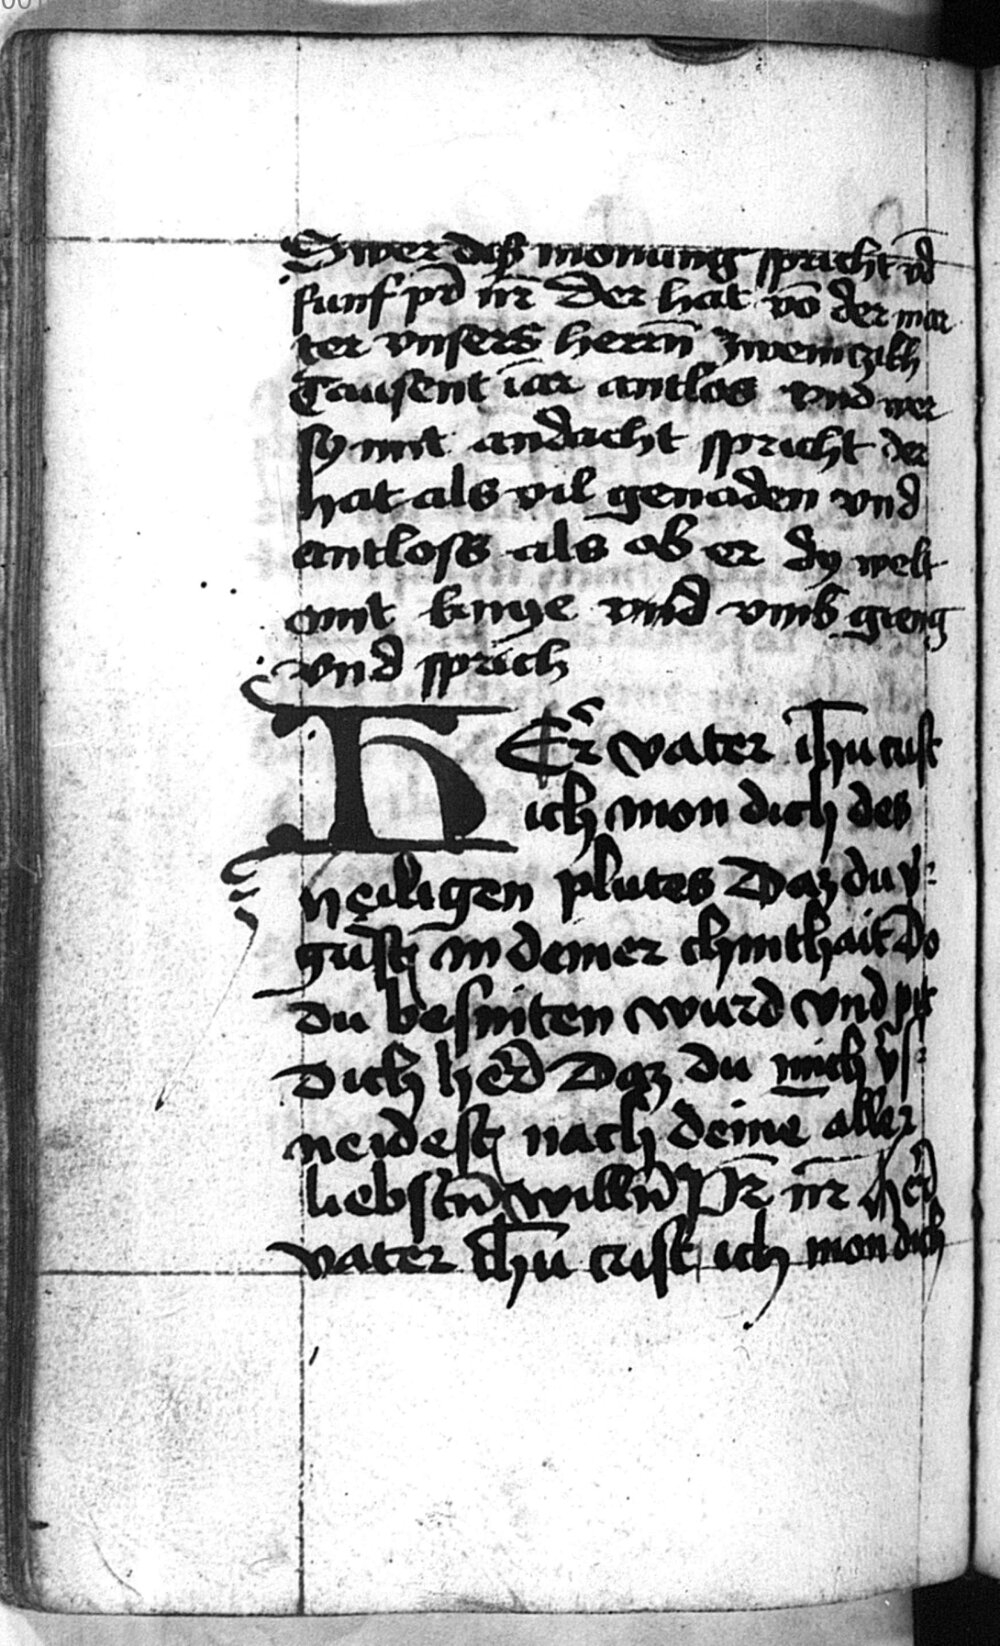 Swer dise monung spricht vnd
funf pr̄ nr̄ Der hat võ der mar
ter vnsers herrn̄ zweinczikh
Tausent iar antlos vnd wer
sy mit andacht spricht der
hat als vil genaden vnd
antloss als ob er dy welt
mit knye vnd vmb gieng
vnd sprich
HEr̄ vater ih̄u crist
ich mon dich des
heiligen plutes Daz du v̄
gust in deiner chinthait Do
du besniten wurd vnd pit
Dich her̄ Daz du mich vſ
neidest nach deine aller
liebstn̄ willn̄ Pr̄ nr̄ her̄
vater ih̄u crist ich mon dich